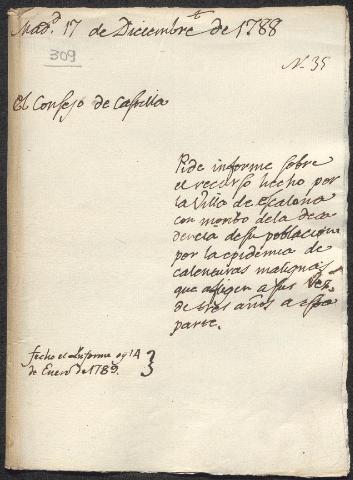 Mad.d 17 de Diciembre de 1788
309
N. 35
El Consejo de Castilla
Pide informe sobre
el recurso hecho por
la Villa de Escalona
con motibo dela deca
dencia desu poblacion
por la epidemia de
calenturas malignas
que afligen a sus Vez.s
de tres años a esta
parte.
fecho el Informe oy 14
de Enero de 1789.